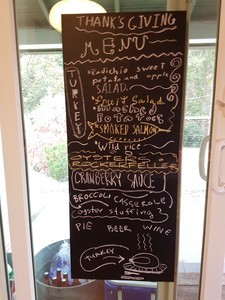 THANK'S GIVING
MENU
TURKEY
Radichio sweet
potato and apple
SALAD
Fruit Salad
MASHED
POTATOES
SMOKED SALMON
Wild rice
OYSTERS
ROCKERFELLER
CRANBERRY SAUCE
BROCCOLI CASSEROLE
oyster stuffing
PIE BEER WINE
TURKEY